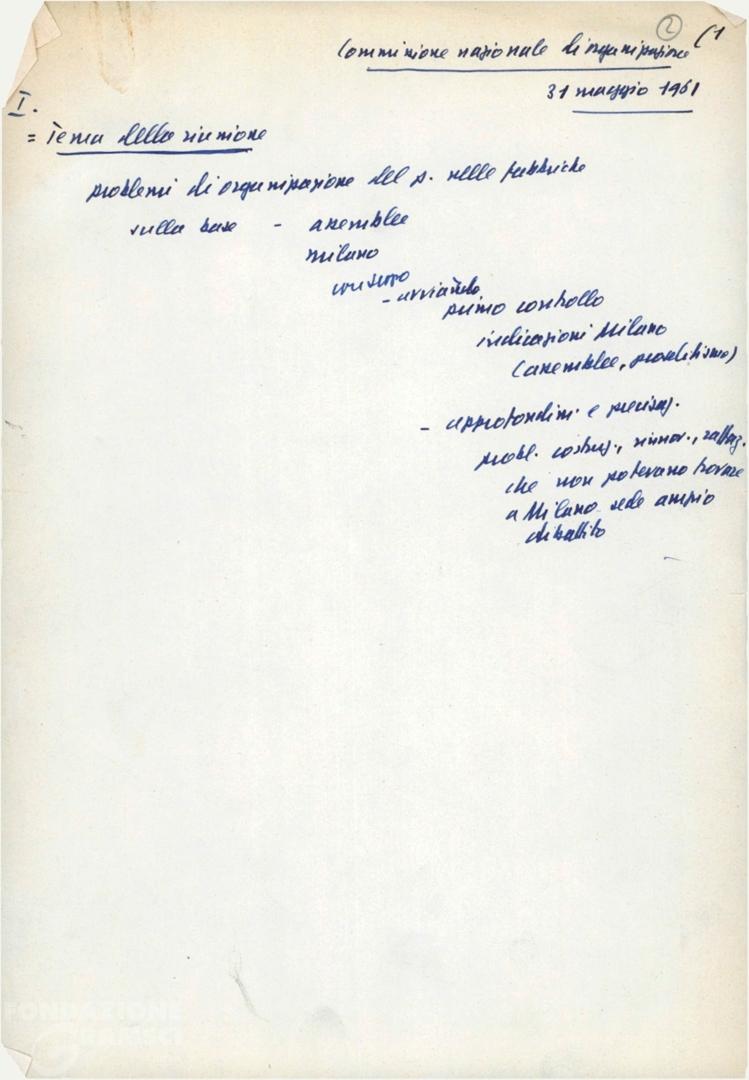 ② (1
Commissione nazionale di organizzazione
31 maggio 1961
I.
= Tema della riunione
problemi di organizzazione del p. nelle fabbriche
sulla base - assemblee
milano
- avviando
primo controllo
indicazioni Milano
(assemblee, proselitismo)
- approfondim. e precisaz.
probl. costruz., rinnov., raffaz.
che non potevano trovare
a Milano sede ampio
dibattito
FONDAZIONE
GRAMSCI